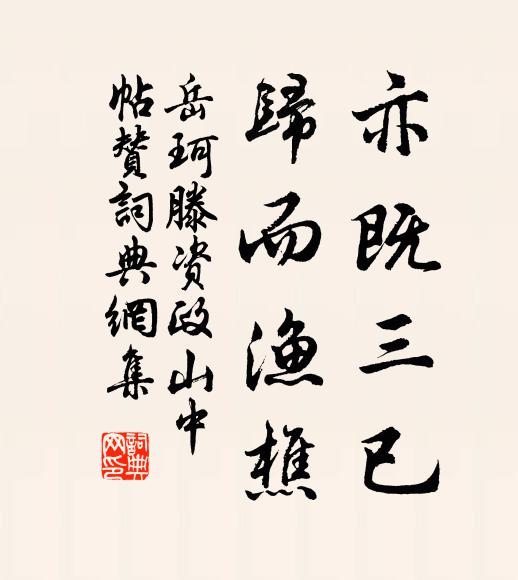 亦既三已
歸而漁樵
岳珂滕资政山中
帖赞詞典網集
詞典網印